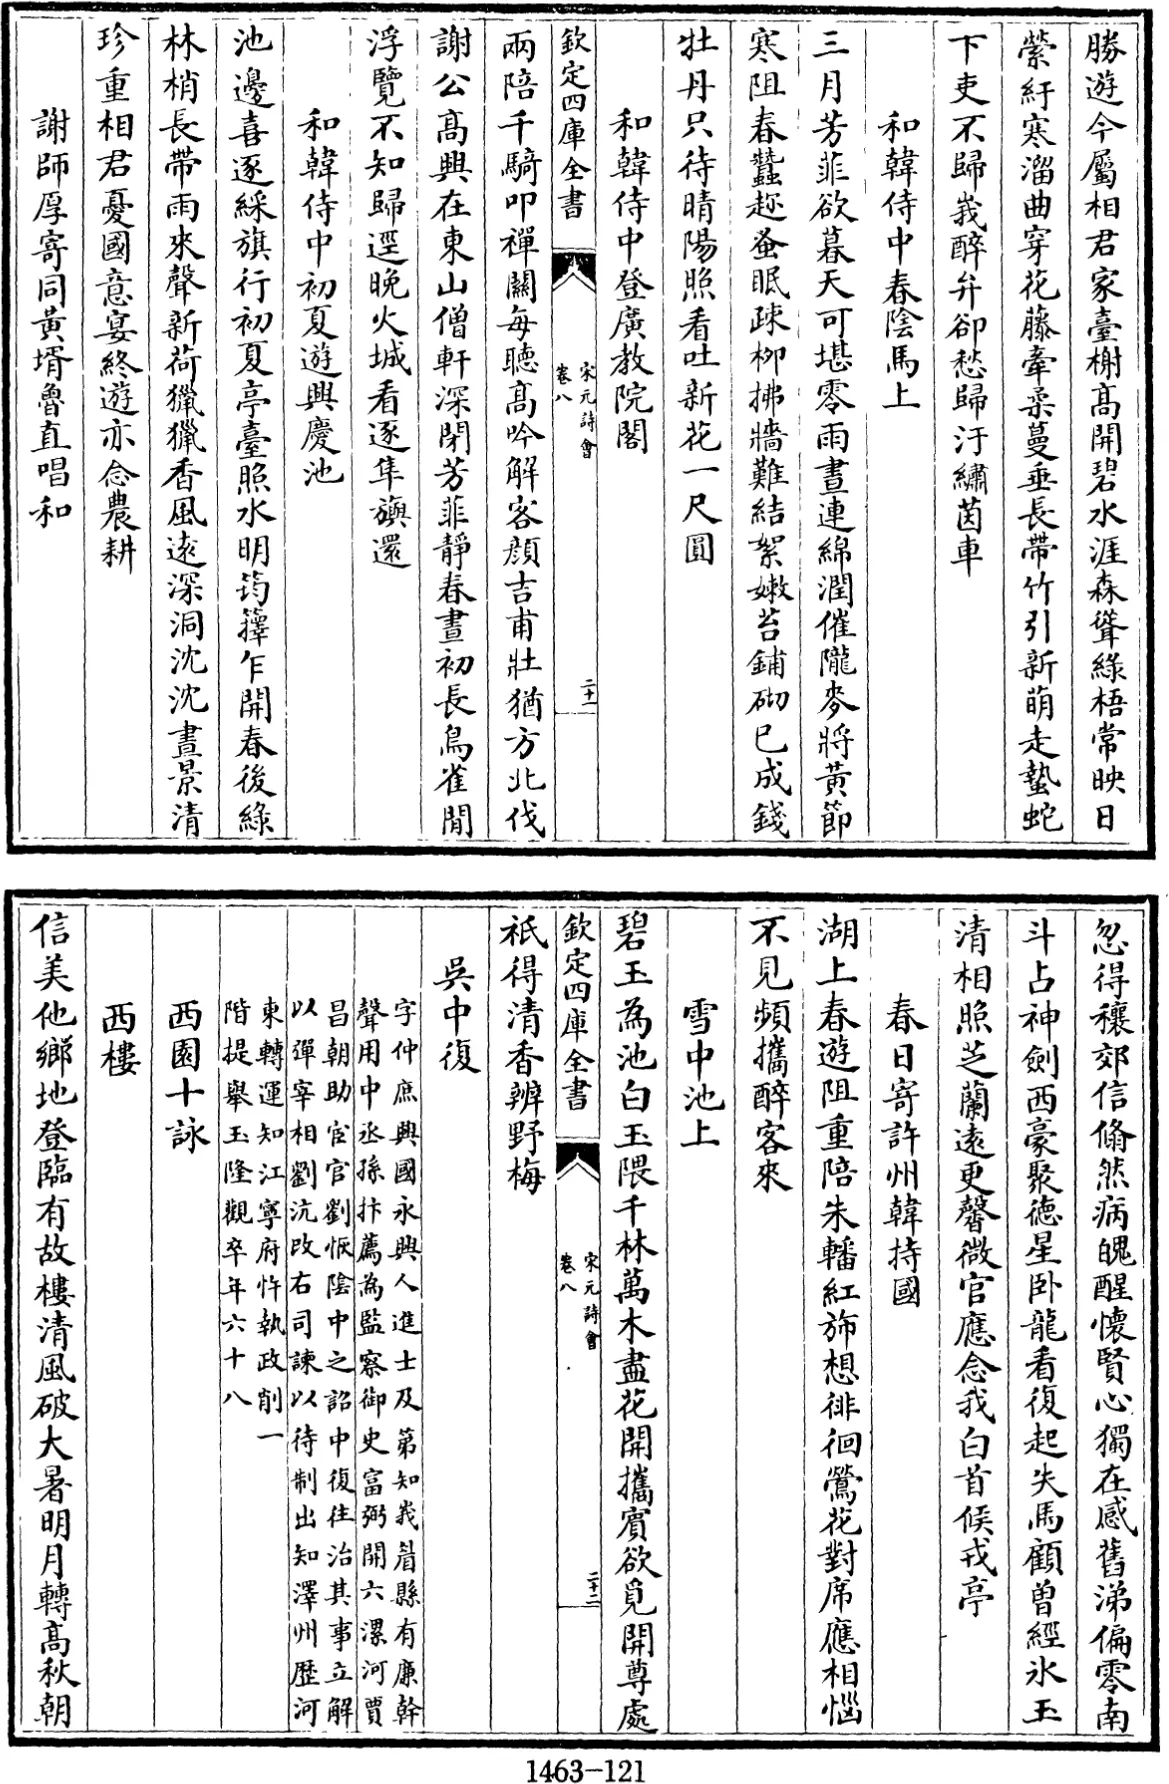 勝遊今屬相君家臺榭高開碧水涯森聳綠梧常映日
縈紆寒溜曲穿花藤牽柔蔓垂長帶竹引新萌走蟄蛇
下吏不歸莪醉弁卻愁歸汙繡茵車
和韓侍中春陰馬上
三月芳菲欲暮天可堪零雨晝連綿潤催隴麥將黃節
寒阻春蠶趂蚤眠疎栁拂牆難結絮嫩苔鋪砌已成錢
牡丹只待晴陽照看吐新花一尺圓
和韓侍中登廣教院閣
欽定四庫全書
宋元詩會
卷八
二十一
兩陪千騎叩禪關每聽高吟解客顔吉甫壯猶方北伐
謝公高興在東山僧軒深閉芳菲靜春晝初長鳥雀閒
浮覽不知歸逕晚火城看逐隼旟還
和韓侍中初夏遊興慶池
池邊喜逐綵旗行初夏亭臺照水明筠籜乍開春後綠
林梢長帶雨來聲新荷獵獵香風遠深洞沈沈晝景清
珍重相君憂國意宴終遊亦念農耕
謝師厚寄同黃壻魯直唱和
忽得穰郊信翛然病魄醒懷賢心獨在感舊涕偏零南
斗占神劍西豪聚德星卧龍看復起失馬顧曾經氷玉
清相照芝蘭遠更馨微官應念我白首候戎亭
春日寄許州韓持國
湖上春遊阻重陪朱轓紅斾想徘徊鶯花對席應相惱
不見頻攜醉客來
雪中池上
碧玉為池白玉隈千林萬木盡花開攜賓欲覓開尊處
欽定四庫全書
宋元詩會
卷八
二十二
祇得清香辨野梅
吳中復
字仲庶興國永興人進士及第知峩眉縣有廉幹
聲用中丞孫抃薦為監察御史富弼開六漯河賈
昌朝助宦官劉恢陰中之詔中復往治其事立解
以彈宰相劉沆改右司諫以待制出知澤州歷河
東轉運知江寧府忤執政削一
階提舉玉隆觀卒年六十八
西園十詠
西樓
信美他鄉地登臨有故樓清風破大暑明月轉高秋朝
1463-121